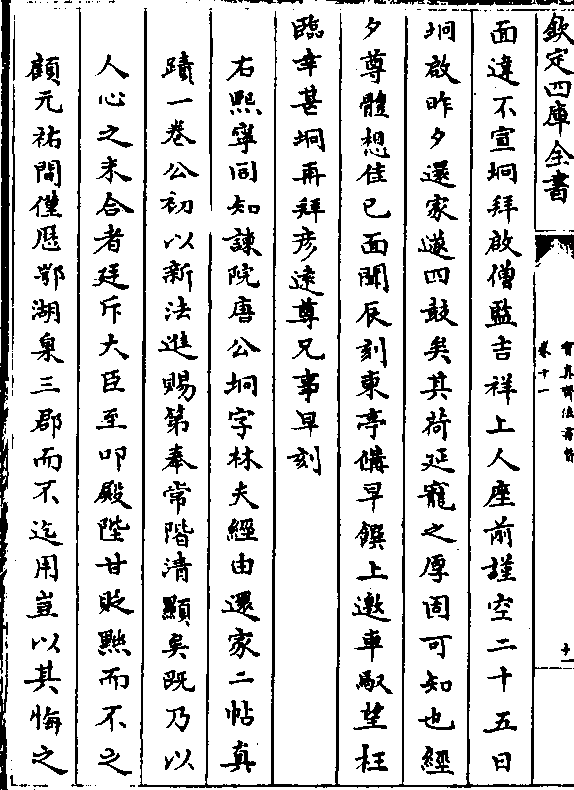 欽定四庫全書
寶真齋法書贊
卷十一
十一
面違不宣坰拜啟僧監吉祥上人座前謹空二十五日
坰啟昨夕還家遂四鼓矣其荷延寵之厚固可知也經
夕尊體想佳已面聞辰刻東亭偹早饌上邀車馭望枉
臨幸甚坰再拜彥逺尊兄事早刻
右熙寧同知諫院唐公坰字林夫經由還家二帖真
蹟一卷公初以新法進賜第奉常階清顯矣既乃以
人心之未合者廷斥大臣至叩殿陛甘貶黜而不之
顧元祐間僅厯鄂湖泉三郡而不迄用豈以其悔之